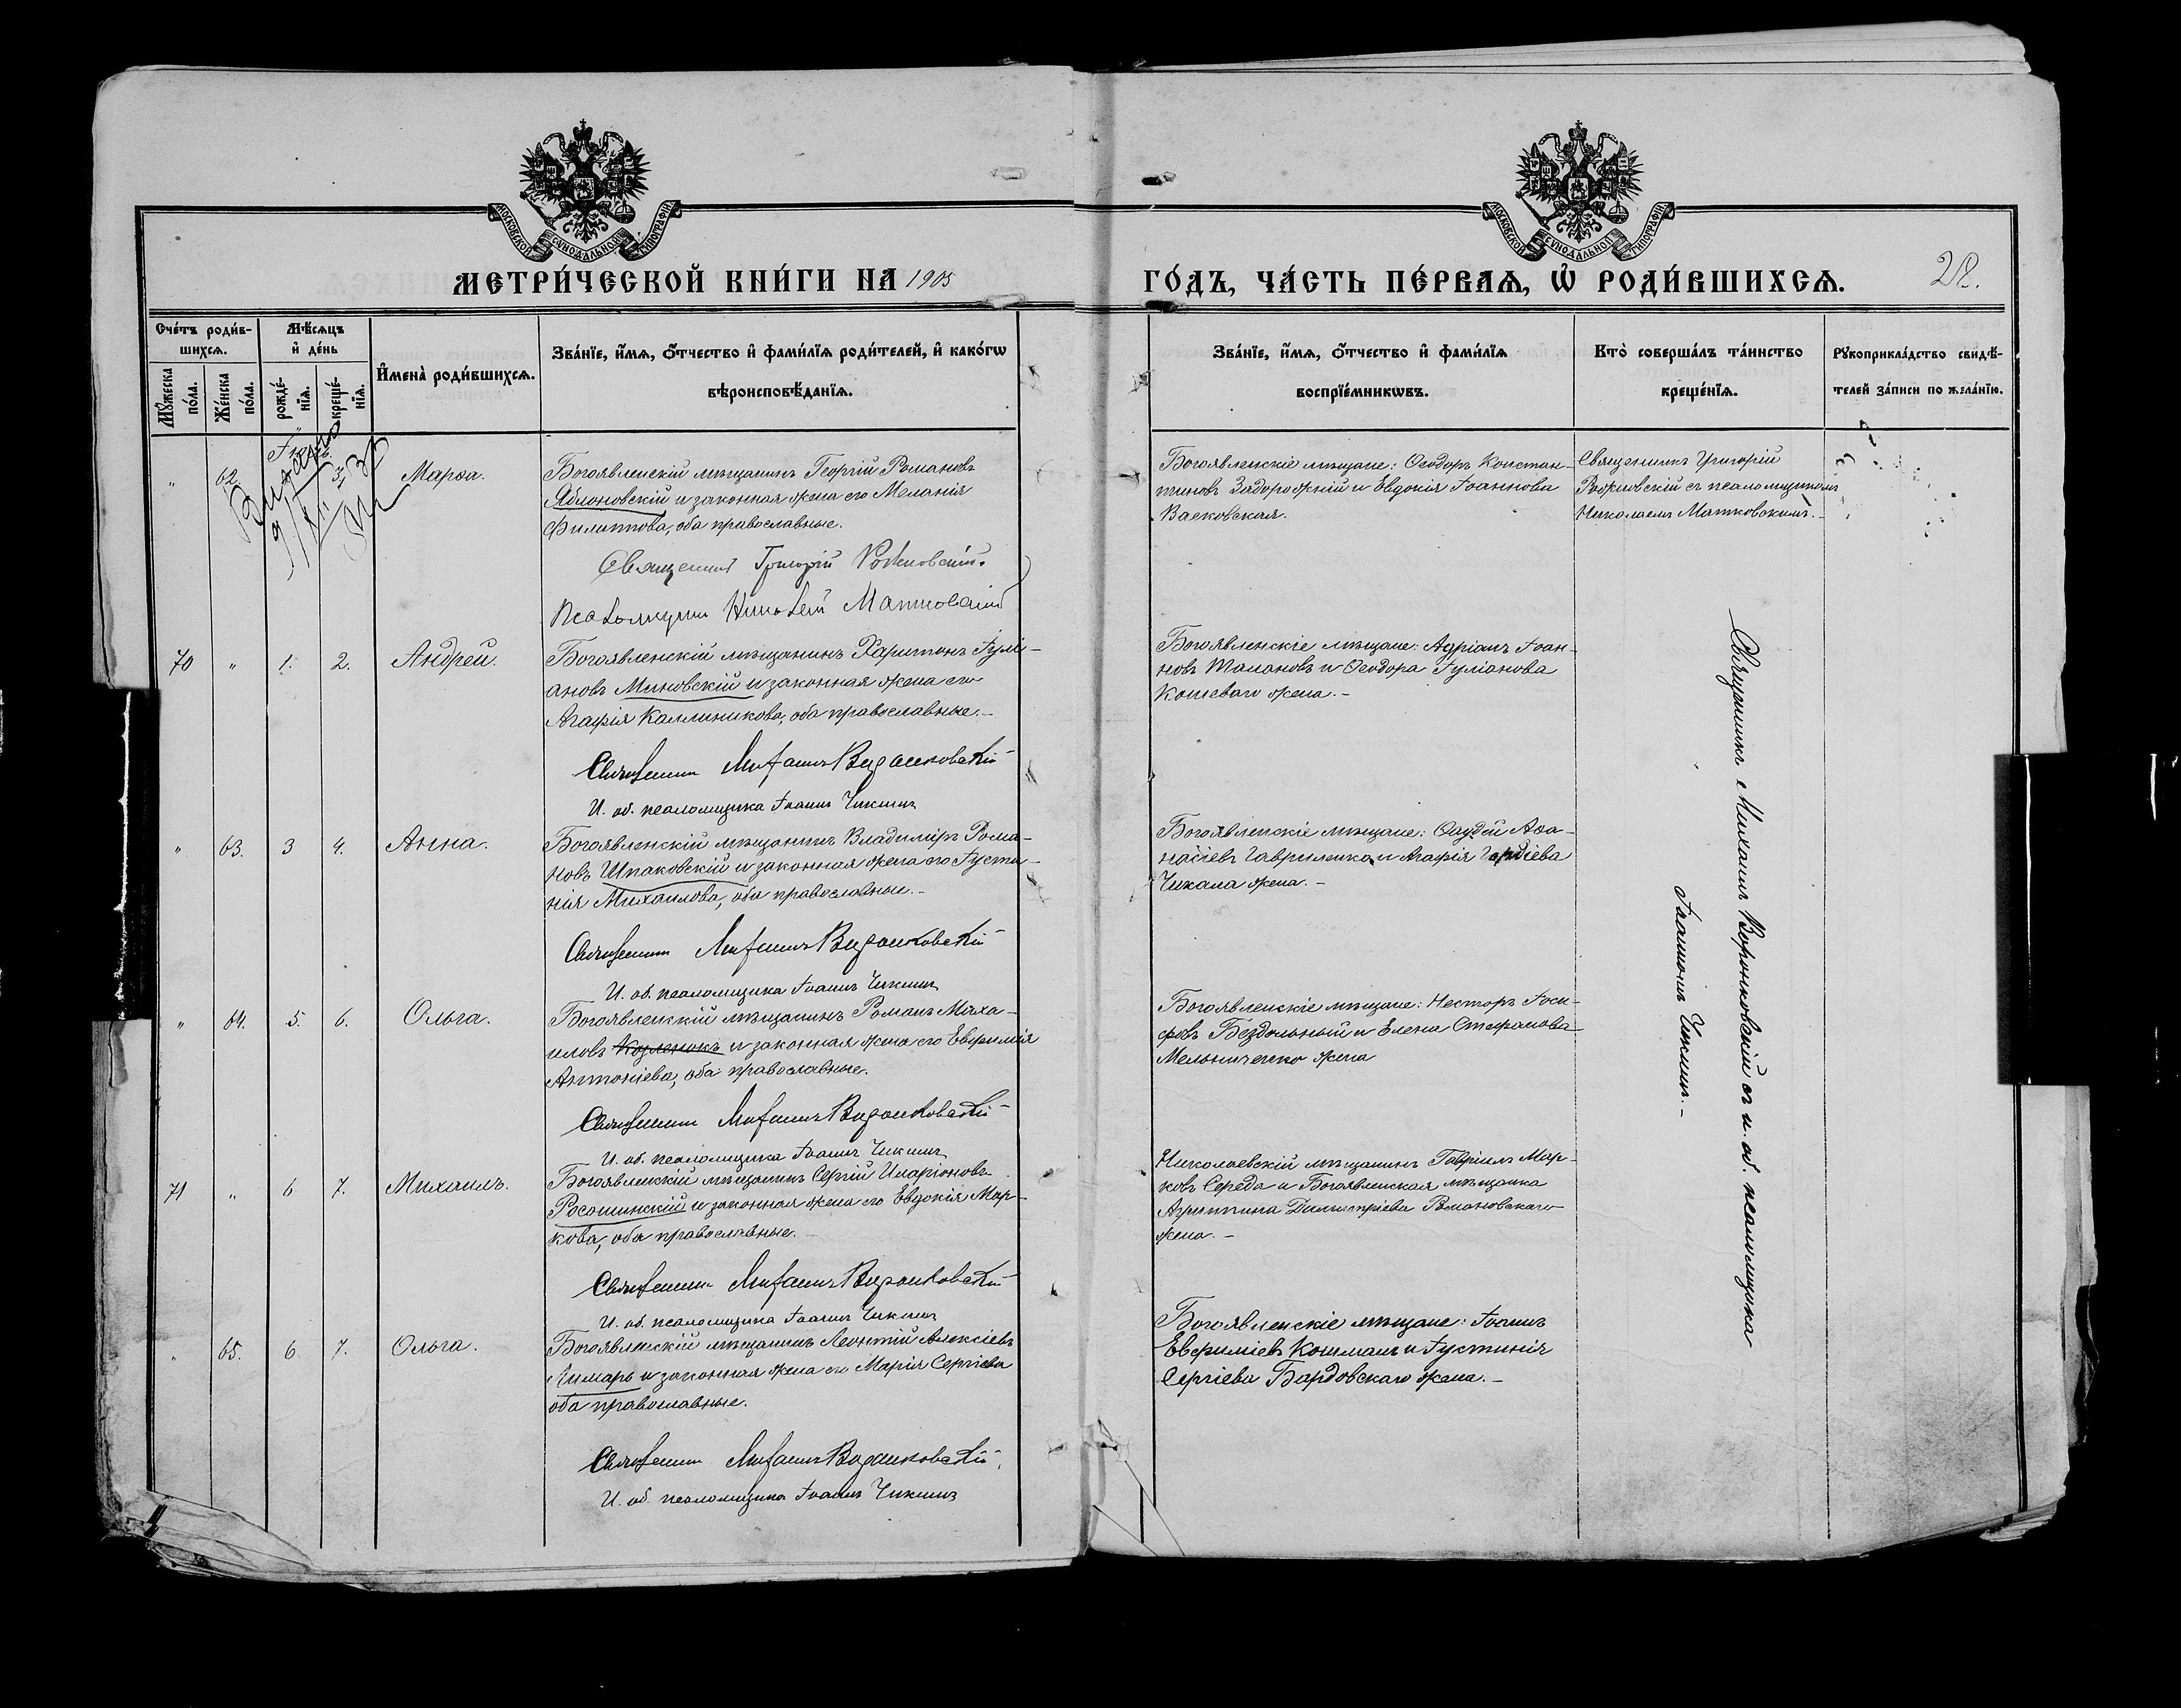 МОСКОВСКОЙ СѴНОДАЛЬНОЙ ТИПОГРАФІИ
МОСКОВСКОЙ СѴНОДАЛЬНОЙ ТИПОГРАФІИ
МЕТРИ́ЧЕСКОЙ КНИ́ГИ НА 1905
ГО́ДЪ, ЧА́СТЬ ПЕ́РВАѦ, Ѡ РОДИ́ВШИХСѦ.
28.
Сче́тъ роди́в-
шихсѧ.
Му́жеска по́ла.
Же́нска по́ла.
Мѣ́сѧцъ
и де́нь
рожде́-
нїѧ.
креще́-
нїѧ.
Имена̀ роди́вшихсѧ.
Зва́нїе, и́мѧ, о́тчество и фами́лїѧ роди́телей, и како́гѡ
вѣроисповѣ́данїѧ.
Зва́нїе, и́мѧ, о́тчество и фами́лїѧ
воспрїе́мникѡвъ.
Кто̀ соверша́лъ та́инство
креще́нїѧ.
Рукоприкла́дство свидѣ́-
телей за́писи по жела́нїю.
" 62 Марѳа.
Богоявленскій мѣщанинъ Георгій Романовъ
Яблоновскій и законная жена его Меланія
Филиппова, оба православные.
Священникъ Григорій Рожновскій.
Псаломщикъ Николай Матковскій
Богоявленскіе мѣщане: Ѳеодоръ Констан-
тиновъ Задорожній и Евдокія Іоаннова
Васковская.
Священникъ Григорій
Рожновскій съ псаломщикомъ
Николаемъ Матковскимъ.-
70 " 1. 2. Андрей.
Богоявленскій мѣщанинъ Харитонъ Іулі-
ановъ Миновскій и законная жена его
Агафія Каллиникова, оба православные.-
Священникъ Михаилъ Воронковскій
И. об. псаломщика Іоаннъ Чикминъ
Богоявленскіе мѣщане: Адріанъ Іоан-
новъ Талановъ и Ѳеодора Іуліанова
Кошеваго жена.-
" 63. 3 4. Анна.
Богоявленскій мѣщанинъ Владиміръ Рома-
новъ Шпаковскій и законная жена его Іусти-
нія Михаилова, оба православные.-
Священникъ Михаилъ Воронковскій
И. об. псаломщика Іоаннъ Чикминъ
Богоявленскіе мѣщане: Ѳаддей Аѳа-
насіевъ Гавриленко и Агафія
Чикала жена.-
" 64. 5. 6. Ольга.
Богоявленскій мѣщанинъ Романъ Миха-
иловъ Козленокъ и законная жена его Евфимія
Антоніева, оба православные.
Священникъ Михаилъ Воронковскій
И. об. псаломщика Іоаннъ Чикминъ
Богоявленскіе мѣщане: Несторъ Іоси-
фовъ Бездольный и Елена Стефанова
Мельниченко жена
71 " 6 7. Михаилъ.
Богоявленскій мѣщанинъ Сергій Иларіоновъ
Росошинскій и законная жена его Евдокія Мар-
кова, оба православные.-
Священникъ Михаилъ Воронковскій
И. об. псаломщика Іоаннъ Чикминъ
Николаевскій мѣщанинъ Гавріилъ Мар-
ковъ Середа и Богоявленская мѣщанка
Агриппина Димитріева Романовскаго
жена.-
" 65. 6 7. Ольга.
Богоявленскій мѣщанинъ Леонтій Алексіевъ
Лимарь и законная жена его Марія Сергіева
оба православные.
Священникъ Михаилъ Воронковскій
И. об. псаломщика Іоаннъ Чикминъ
Богоявленскіе мѣщане: Іоаннъ
Евфиміевъ Кошманъ и Іустинія
Сергіева Бардовскаго жена.-
Священникъ Михаилъ Воронковскій съ и. об. псаломщика
Іоанномъ Чикминъ.-